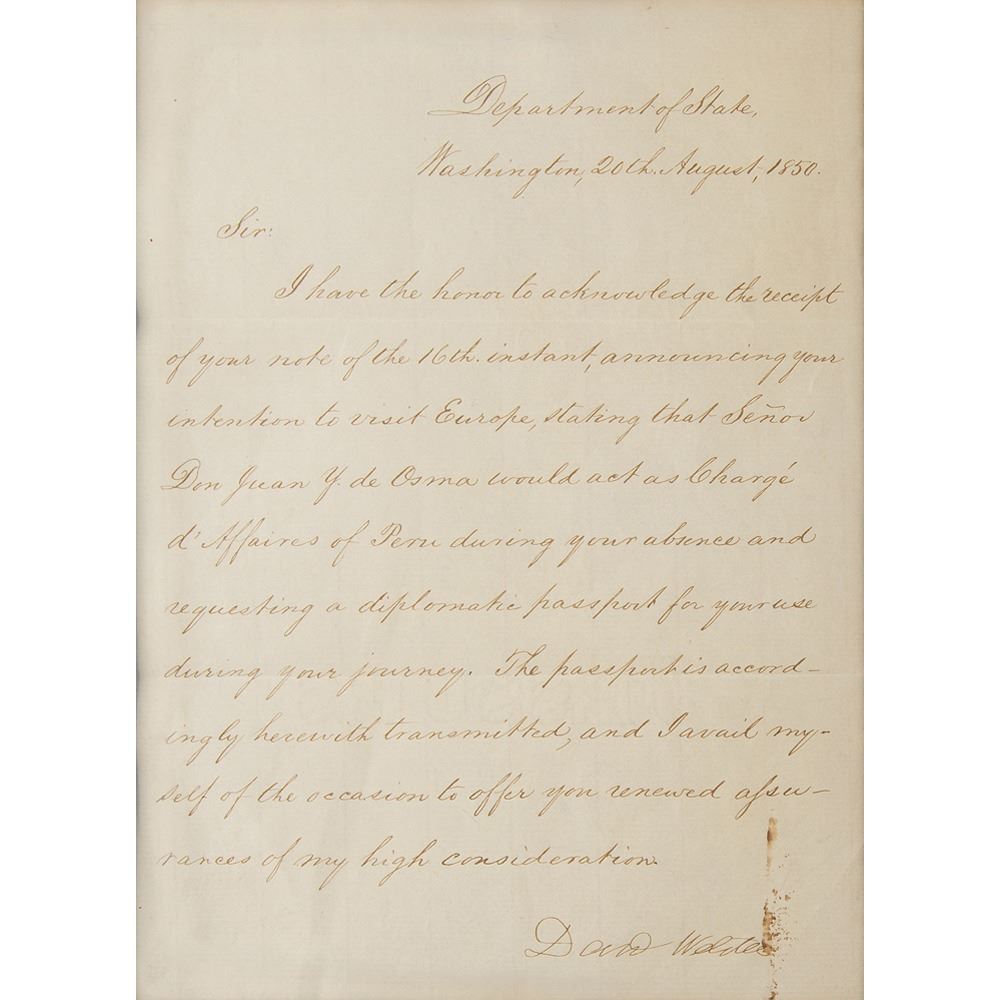 Department of State,
Washington, 20th. August, 1850.
Sir:
I have the honor to acknowledge the receipt
of your note of the 16th. instant, announcing your
intention to visit Europe, stating that Señor
Don Juan Y. de Osma would act as Chargé
d'Affaires of Peru during your absence and
requesting a diplomatic passport for your use
during your journey. The passport is accord-
ingly herewith transmitted, and I avail my-
self of the occasion to offer you renewed aſsu-
rances of my high consideration.
Danl Webster